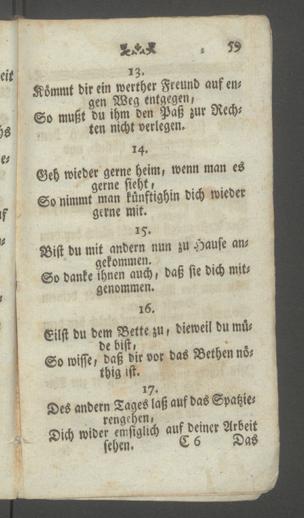 59
13.
Kömmt dir ein werther Freund auf en-
gen Weg entgegen,
So mußt du ihm den Paß zur Rech-
ten nicht verlegen.
14.
Geh wieder gerne heim, wenn man es
gerne sieht,
So nimmt man künftighin dich wieder
gerne mit.
15.
Bist du mit andern nun zu Hause an-
gekommen.
So danke ihnen auch, daß sie dich mit-
genommen.
16.
Eilst du dem Bette zu, dieweil du mü-
de bist,
So wisse, daß dir vor das Bethen nö-
thig ist.
17.
Des andern Tages laß auf das Spatzie-
rengehen,
Dich wider emsiglich auf deiner Arbeit
sehen.
C 6 Das